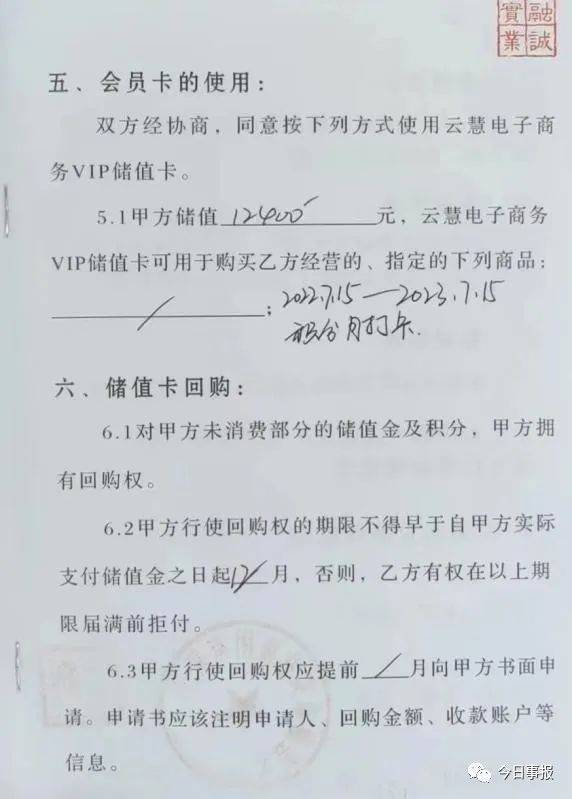 融誠
實業
五、会员卡的使用：
双方经协商，同意按下列方式使用云慧电子商
务VIP储值卡。
5.1甲方储值12400元，云慧电子商务
VIP储值卡可用于购买乙方经营的、指定的下列商品：
/；2022.7.15—2023.7.15
积分月打卡.
六、储值卡回购：
6.1对甲方未消费部分的储值金及积分，甲方拥
有回购权。
6.2甲方行使回购权的期限不得早于自甲方实际
支付储值金之日起12月，否则，乙方有权在以上期
限届满前拒付。
6.3甲方行使回购权应提前/月向甲方书面申
请。申请书应该注明申请人、回购金额、收款账户等
信息。
今日事报